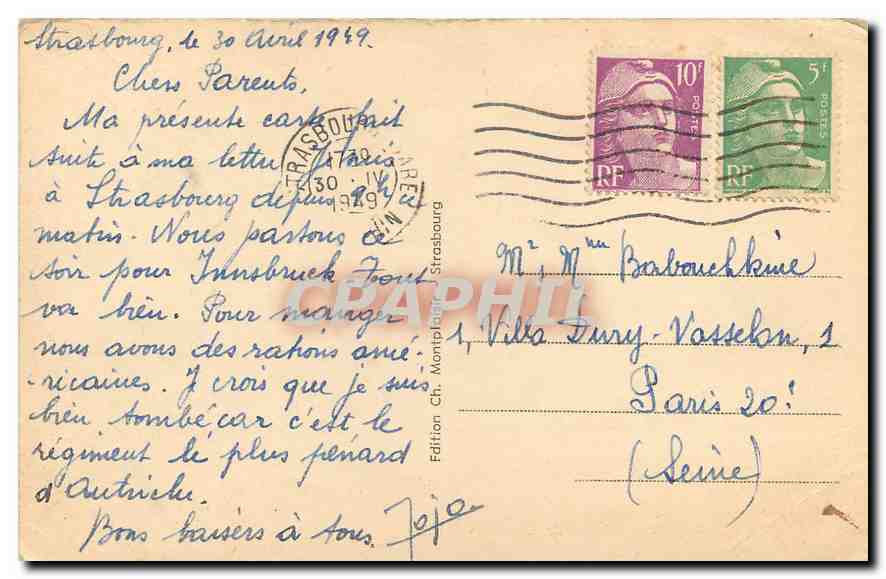 Strasbourg, le 30 Avril 1949.
Chers Parents,
Ma présente carte fait
suite à ma lettre. Je suis
à Strasbourg depuis ce
matin. Nous partons ce
soir pour Innsbruck Tout
va bien. Pour manger
nous avons des rations amé-
-ricaines. J crois que je suis
bien tombé car c'est le
régiment le plus pénard
d'Autriche.
Bons baisers à tous. Jojo
STRASBOURG GARE
30 · IV
1949
Edition Ch. Montplaisir - Strasbourg
10F
POSTES
RF
5F
POSTES
RF
Mr, Mme Babouchkine
1, Villa Dury-Vasselon, 1
Paris 20e
(Seine)
CPAPHIL